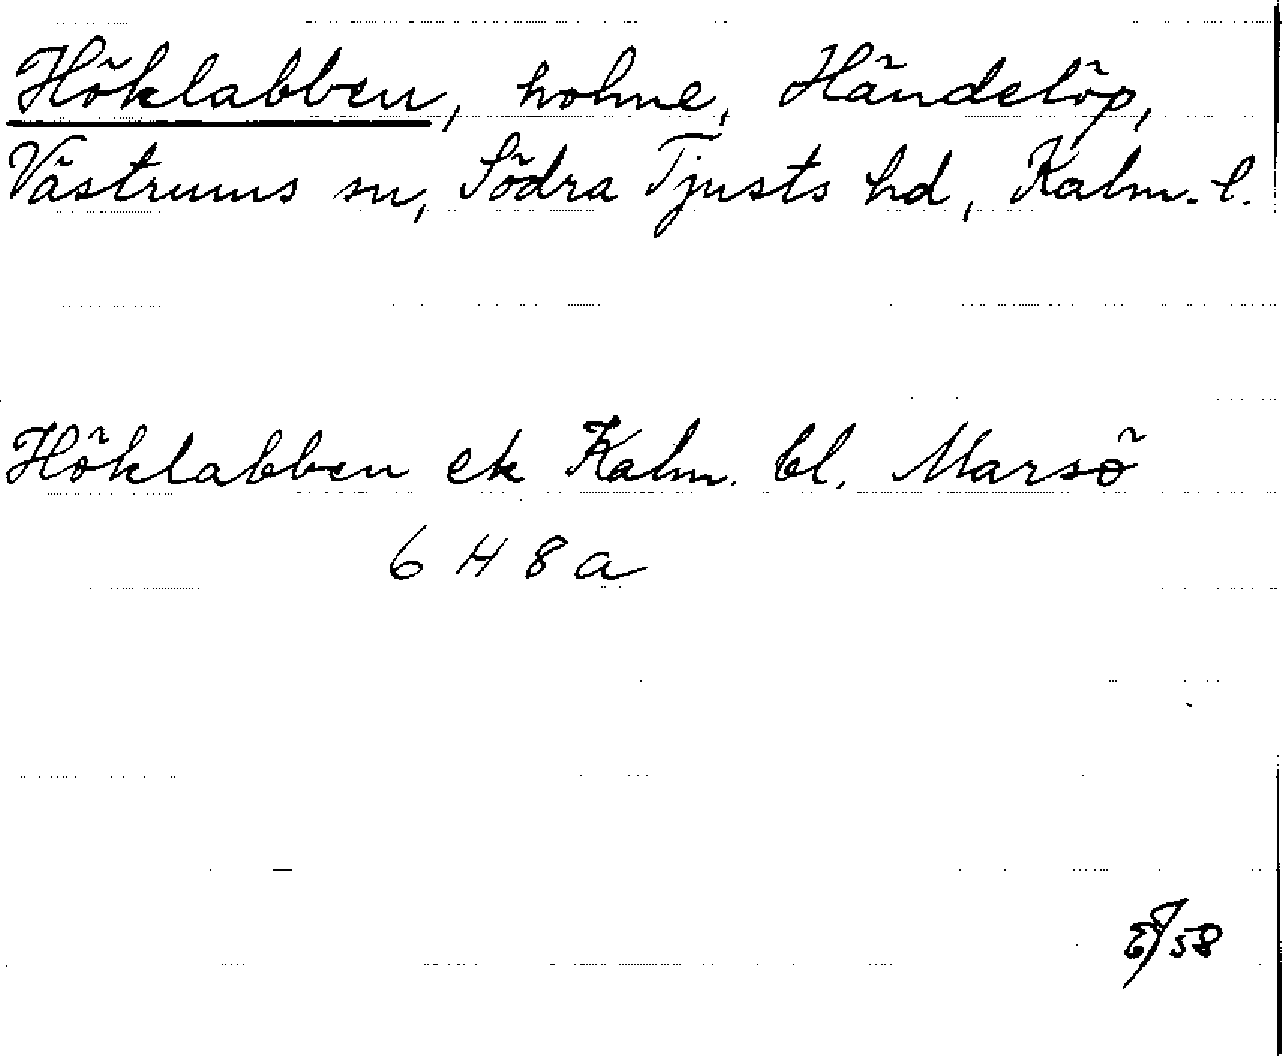 Höklabben, holme, Händelöp,
Västrums sn, Södra Tjusts hd, Kalm. l.
Höklabben ek Kalm. bl. Marsö
6 H 8 a
58